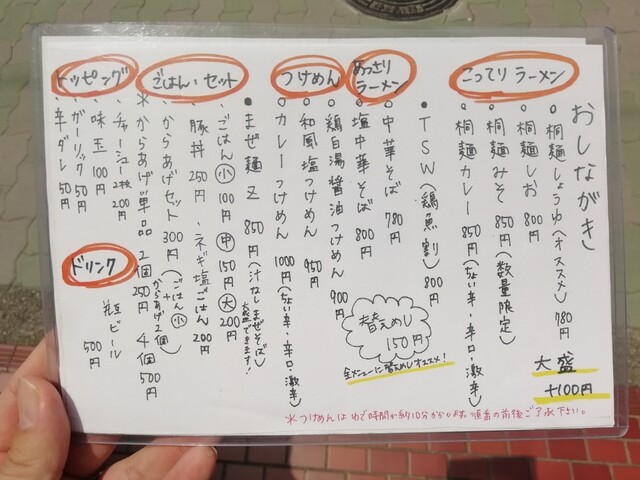 おしながき
こってりラーメン
○桐麺しょうゆ(オススメ) 780円
○桐麺しお 800円
○桐麺みそ 850円(数量限定)
○桐麺カレー 850円(ちょい辛・辛口・激辛)
大盛
+100円
●TSW(鶏魚割) 800円
あっさり
ラーメン
○中華そば 780円
○塩中華そば 800円
替えめし
150円
全メニューに替えめしオススメ!
つけめん
○鶏白湯醤油つけめん 900円
○和風塩つけめん 950円
○カレーつけめん 1000円(ちょい辛・辛口・激辛)
●まぜ麺Z 850円(汁なしまぜそば)
大盛できます!
ごはん・セット
・ごはん 小 100円 中 150円 大 200円
・豚丼 250円
・ネギ塩ごはん 200円
・からあげセット 300円(ごはん小
+
からあげ2個)
*からあげ単品 2個 250円 4個 500円
トッピング
・チャーシュー2枚 200円
・味玉 100円
・ガーリック 50円
・辛ダレ 50円
ドリンク
瓶ビール
500円
※つけめんはゆで時間が約10分かかります。順番の前後ご了承下さい。